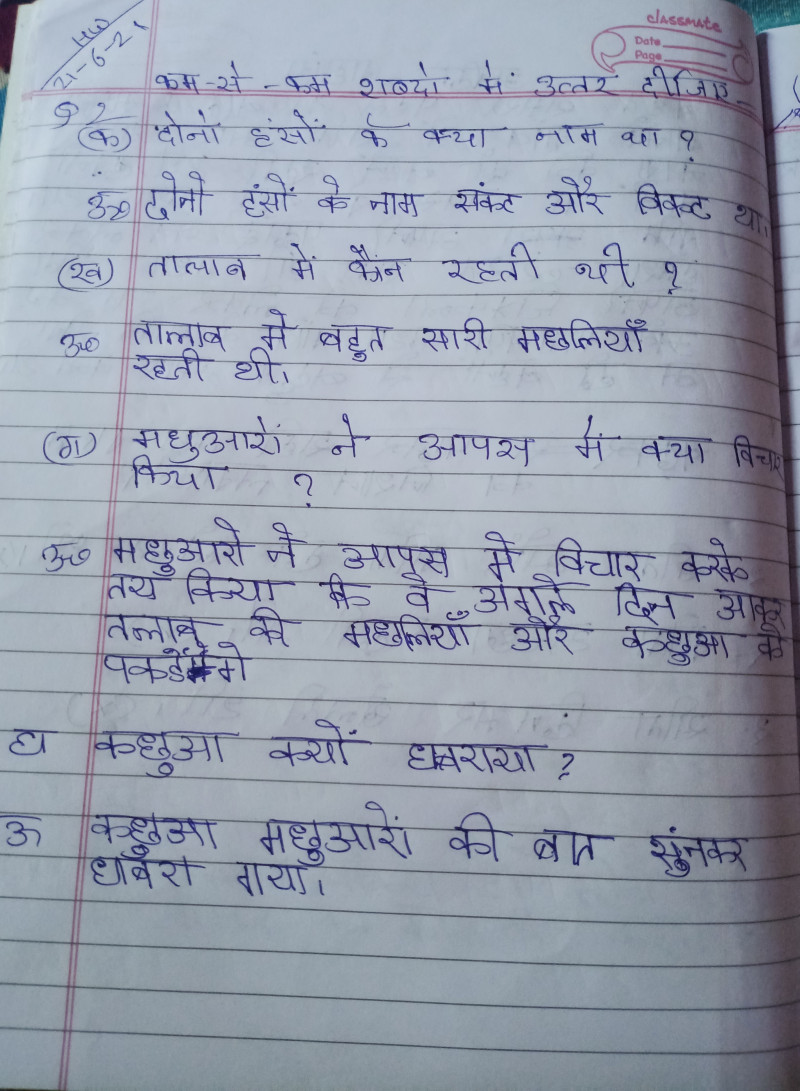 HW
21-6-21
classmate
Date
Page
कम-से-कम शब्दो में उत्तर दीजिए-
Q 2
(क) दोनो हंसों के क्या नाम था ?
उ० दोनो हंसों के नाम संकट और विकट था।
(ख) तालाब में कौन रहती थी ?
उ० तालाब मे बहुत सारी मछलियाँ
रहती थी।
(ग) मधुआरों ने आपस में क्या विचार
किया ?
उ० मछुआरो ने आपस मे विचार करके
तय किया कि वे अगले दिन आकर
तलाब की मछलियाँ और कछुआ के
पकडेंगे
घ कछुआ क्यों घबराया ?
उ कछुआ मछुआरों की बात सुंनकर
घबरा गया।